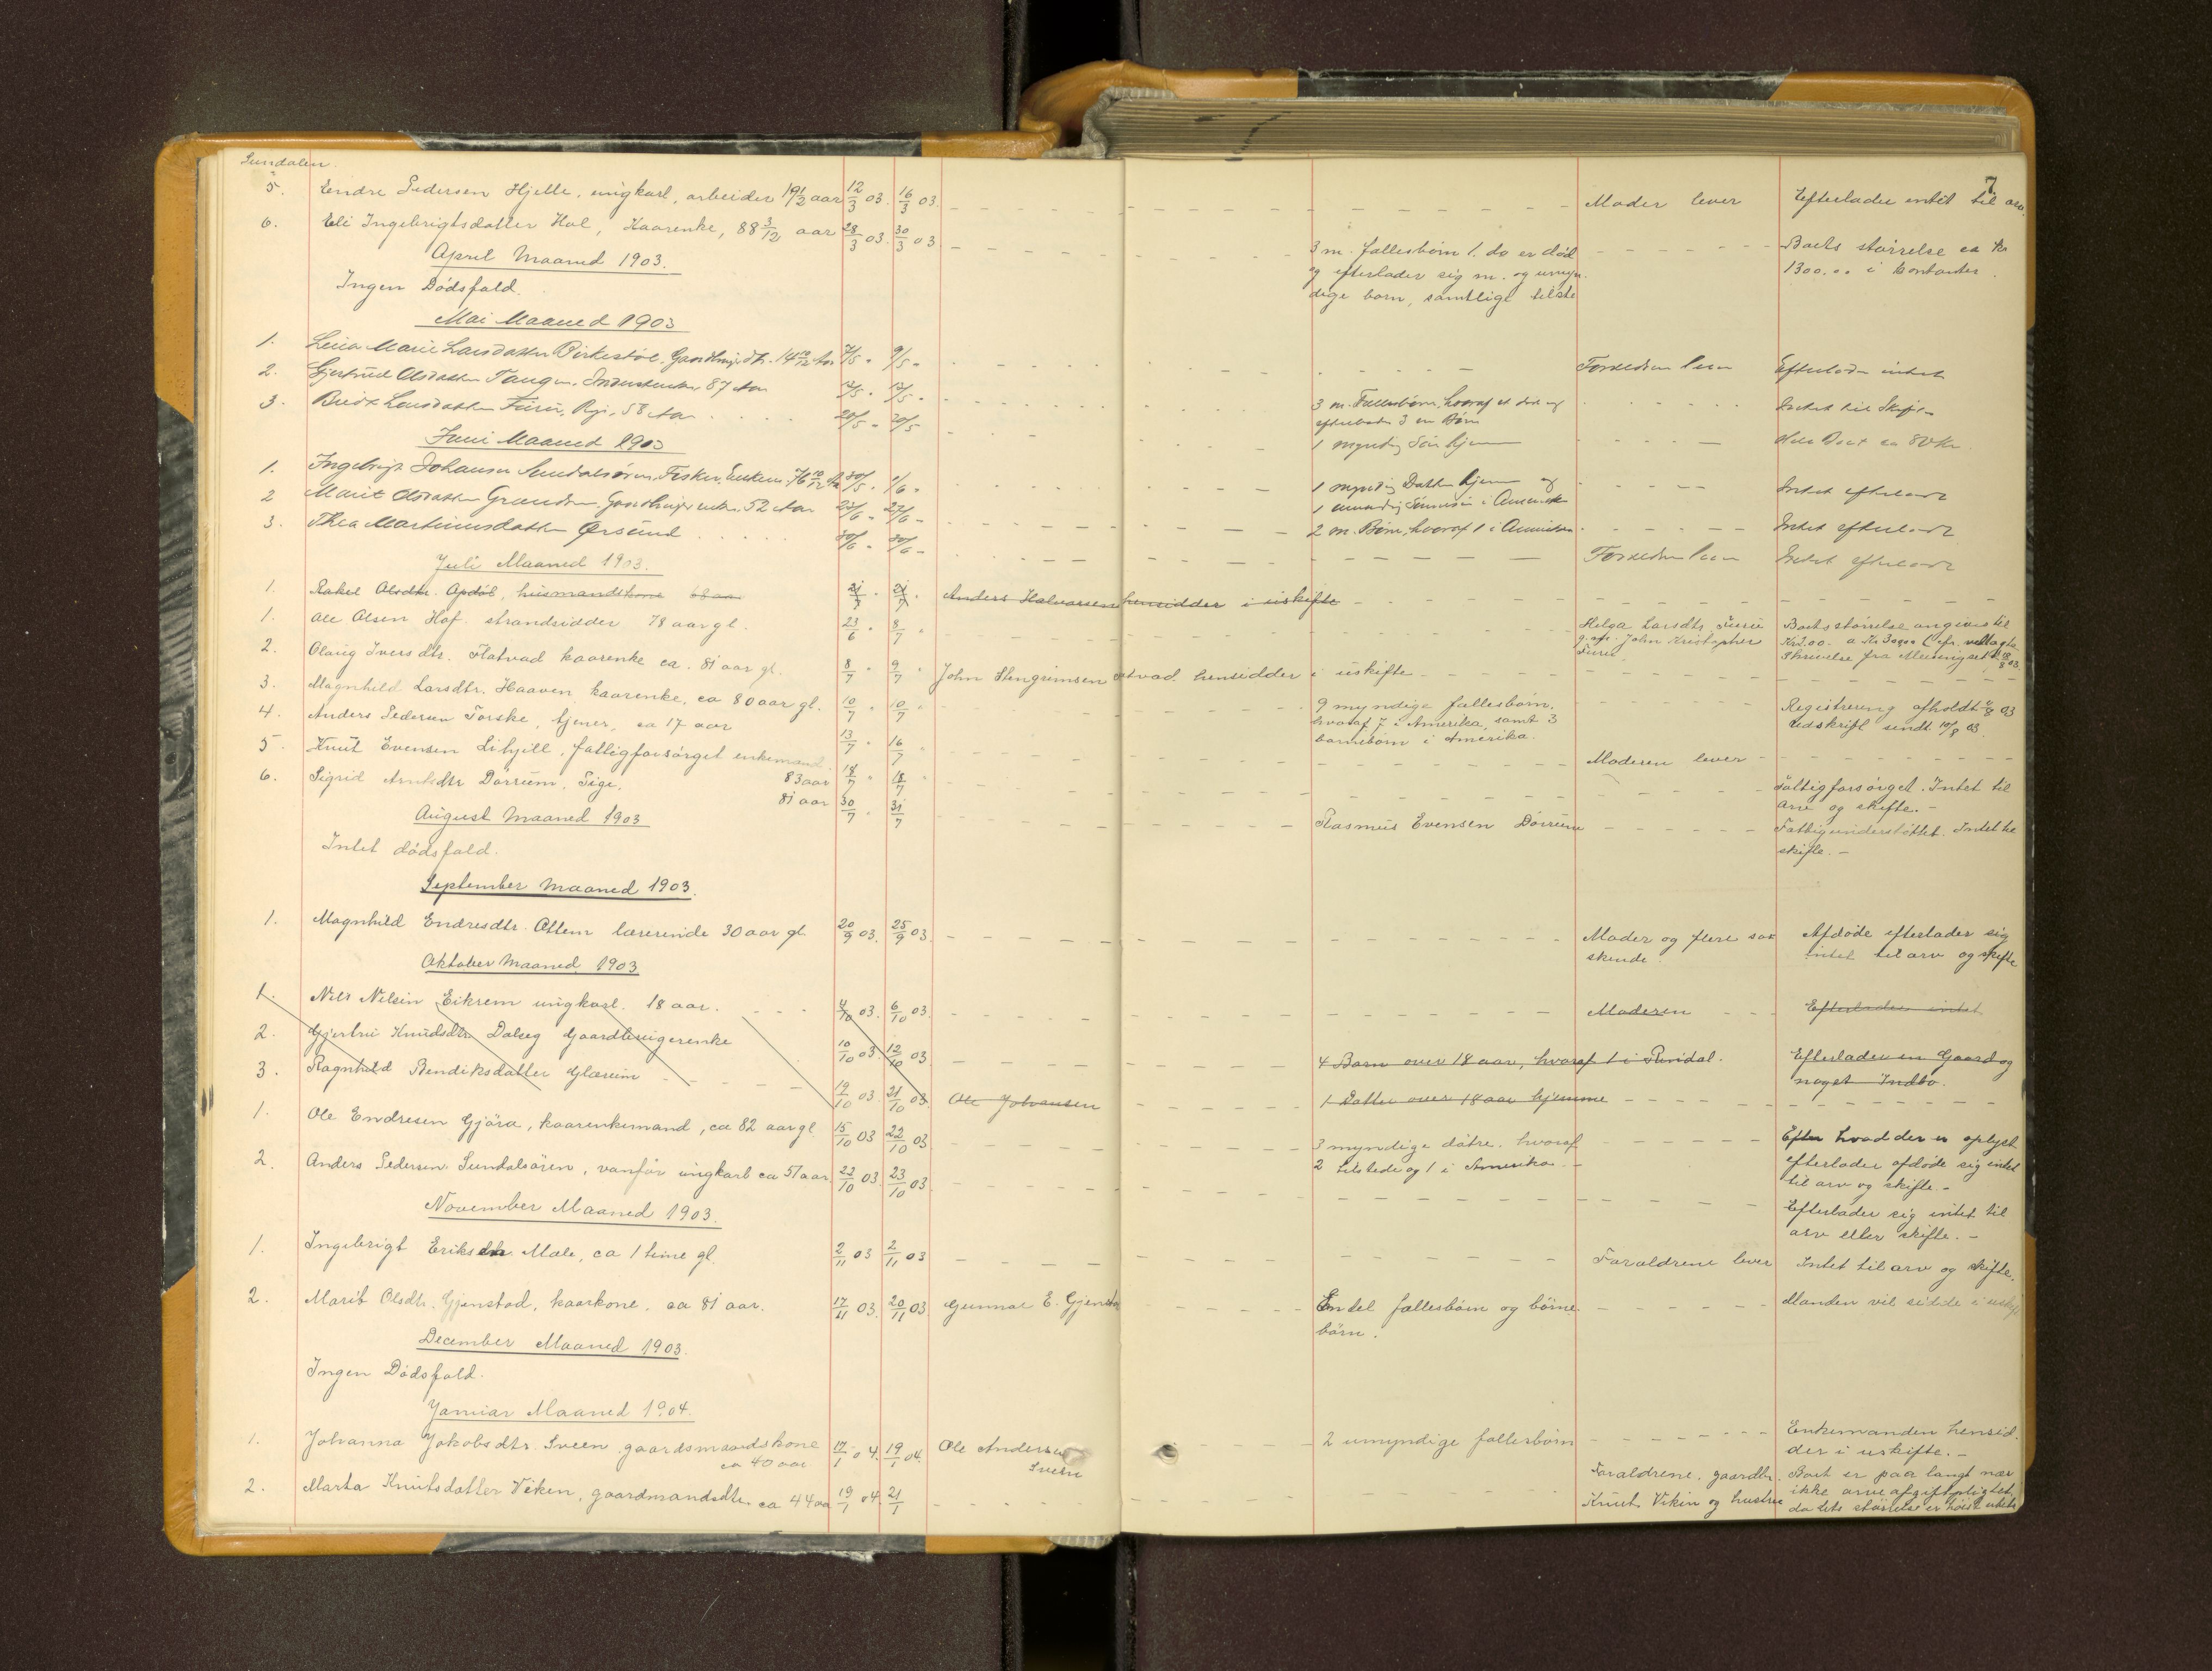 Sundalen.
7
5. Endre Pedersen Hjelle, ungkarl, arbeider 19 1/2 aar 12/3 03. 16/3 03. Moder lever Efterlader intet til arv.
6. Eli Ingebrigtsdatter Hol, Kaarenke, 88 3/12 aar 28/3 03. 30/3 03 3 m. fællesbørn 1. do er död Boets størrelse ca kr
og efterlader sig m. og umyn- 1300.00 i kontanter.
dige børn, samtlige tilste
April Maaned 1903.
Ingen Dödsfald.
Mai Maaned 1903
1. Marie Larsdatter 14 10/12 Aar 7/5 " 9/5 " Forældrene Efterlader intet
2. Gjertrud Olsdatter Tangen 87 Aar 12/5 3 m. Fællesbørn, hvoraf et død og Intet til Skifte
efterladt 3 um Børn
3. Larsdatter Furu, 58 Aar 20/5 " 20/5 1 myndig Søn hjemme ca 80 Kr.
Juni Maaned 1903
1. Ingebrigt Johansen Sundalsøren, Fisker, Enkem. 76 10/12 Aar 30/5 " 1/6 " 1 myndig Datter hjemme og Intet efterladt
i Amerika
2 Marit Olsdatter 52 Aar 2 m. Børn, hvoraf 1 i Amerika Intet efterladt
3. Thea Martinusdatter Ørsund 30/6 " 30/6 " Forældrene Intet efterladt
Juli Maaned 1903.
1. Rakel Olsdtr. Opdöl, husmandskone 68 aar 21/7 " 21/7 " Anders Halvorsen hensidder i uskifte
1. Ole Olsen Hof. strandsidder 78 aar gl. 23/6 " 8/7 " Helga Larsdtr. Furu Boets størrelse angives til
g. m. John Kristopher
Furu.
2. Olaug Iversdtr. Flatvad kaarenke ca. 81 aar gl. 8/7 " 9/7 " John Stengrimsen hensidder i uskifte
3. Magnhild Larsdtr. Haaven kaarenke, ca 80 aar gl. 10/7 " 10/7 " 9 myndige fællesbørn. Registrering afholdt 03
hvoraf 7 i Amerika, samt 3 Udskrift sendt 10/8 03.
barnebørn i Amerika.
4. Anders Pedersen Torske, tjener, ca 17 aar 13/7 " 16/7 Moderen lever
5. Knut Evensen Lihjell, fattigforsörget enkemand 83 aar 18/7 " 18/7 " Fattigforsörget. Intet til
arv og skifte. -
6. Sigrid Arntsdtr Dörrum, Pige, 81 aar 30/7 " 31/7 Rasmus Evensen Dörrum Fattigunderstöttet. Intet til
skifte. -
August Maaned 1903
Intet dödsfald.
September Maaned 1903.
1. Magnhild Endresdtr. Ottem lærerinde 30 aar gl. 20/9 03. 25/9 03. Moder og flere søs Afdøde efterlader sig
skende. intet til arv og skifte
Oktober Maaned 1903
1. Nils Nilsen Eikrem ungkarl. 18 aar. 4/10 03. 6/10 03. Moderen Efterlader intet
2. Gjertru Knudsdtr Dalseg Gaardbrugerenke 10/10 03. 12/10 03. 4 Barn over 18 aar, hvoraf 1 i Sundal. Efterlader en Gaard og
noget Indbo.
3. Ragnhild Bendiksdatter Glærum 19/10 03. 21/10 03. Ole Johansen 1 Datter over 18 aar hjemme
1. Ole Endresen Gjöra, kaarenkemand, ca 82 aar gl. 15/10 03 22/10 03 3 myndige døtre. hvoraf Efter hvad der er oplyst
2 tilstede og 1 i Amerika. - efterlader afdøde sig intet
til arv og skifte. -
2. Anders Pedersen Sundalsören, vanfør ungkarl ca 51 aar. 22/10 03 23/10 03 Efterlader sig intet til
arv eller skifte. -
November Maaned 1903.
1. Ingebrigt Eriksen Mæle, ca 1 time gl. 2/11 03 2/11 03 Forældrene lever Intet til arv og skifte.
2. Marit Olsdtr. Gjenstad, kaarkone, ca 81 aar. 17/11 03. 20/11 03. Gunnar E. Gjensta Endel fællesbörn og börne Manden vil sidde i uskifte
börn.
December Maaned 1903.
Ingen Dödsfald.
Januar Maaned 1904.
1. Johanna Jakobsdtr. Sveen gaardsmandskone 17/1 04. 19/1 04. Ole Andersen 2 umyndige fællesbørn Enkemanden hensid.
ca 40 aar Sveen der i uskifte. -
2. Marta Knutsdatter Viken, gaardmandsdtr. ca 44 aar 19/1 04. 21/1 Forældrene, gaardbr. Boet er paa langt nær
Knut Viken og hustru ikke arveafgiftspligtigt,
da dets størrelse er höist ubety